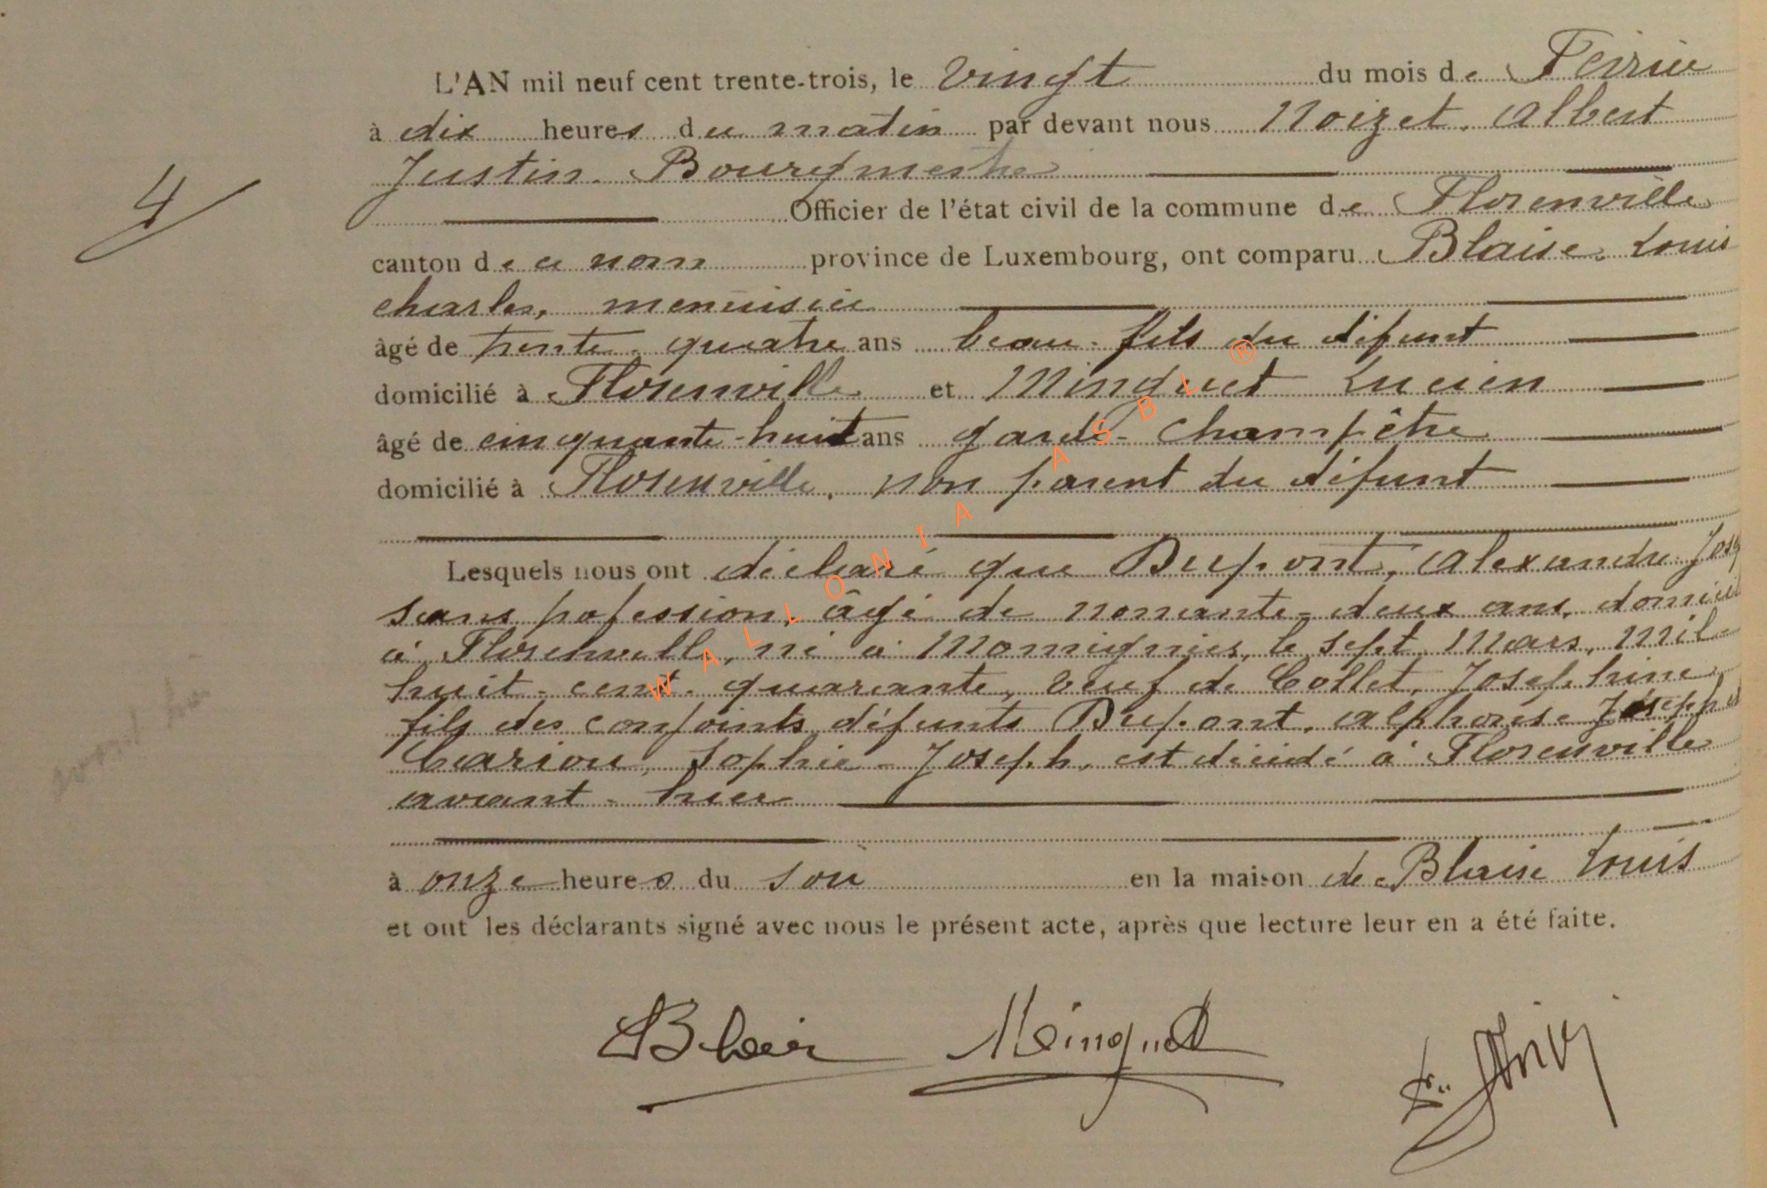 L'AN mil neuf cent trente-trois, le vingt du mois de Février
à dix heures du matin par devant nous Noizet, Albert
4
Justin. Bourgmestre
Officier de l'état civil de la commune de Florenville
canton de ce nom province de Luxembourg, ont comparu Blaise, Louis
charles, menuisier
âgé de trente-quatre ans beau-fils du défunt
domicilié à Florenville et Minquet Lucien
âgé de cinquante-huit ans garde-Champêtre
domicilié à Florenville, non parent du défunt
Lesquels nous ont déclaré que Dupont, Alexandre Jos
sans pofession, âgé de nonante-deux ans, domicil
à Florenville, né à Momignies, le sept Mars, Mil-
huit-cent-quarante, veuf de Collet, Joséphine
fils des conjoints défunts Dupont, Alphonse Joseph et
Carion, Sophie-Joseph, est décédé à Florenville
avant-hier
à onze heures du soir en la maison de Blaise Louis
et ont les déclarants signé avec nous le présent acte, après que lecture leur en a été faite.
Minquet
WALLONIA ASBL ®